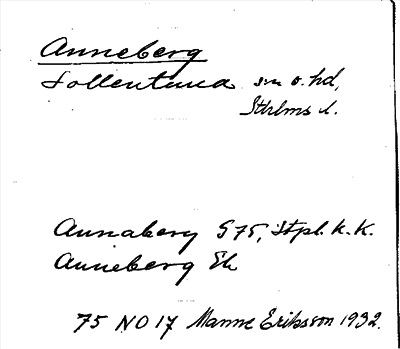 Anneberg
Sollentuna sn o. hd,
Sthlms l.
Annaberg S 75, Stpl. k. k.
Anneberg Ek
75 NO 17 Manne Eriksson 1932.